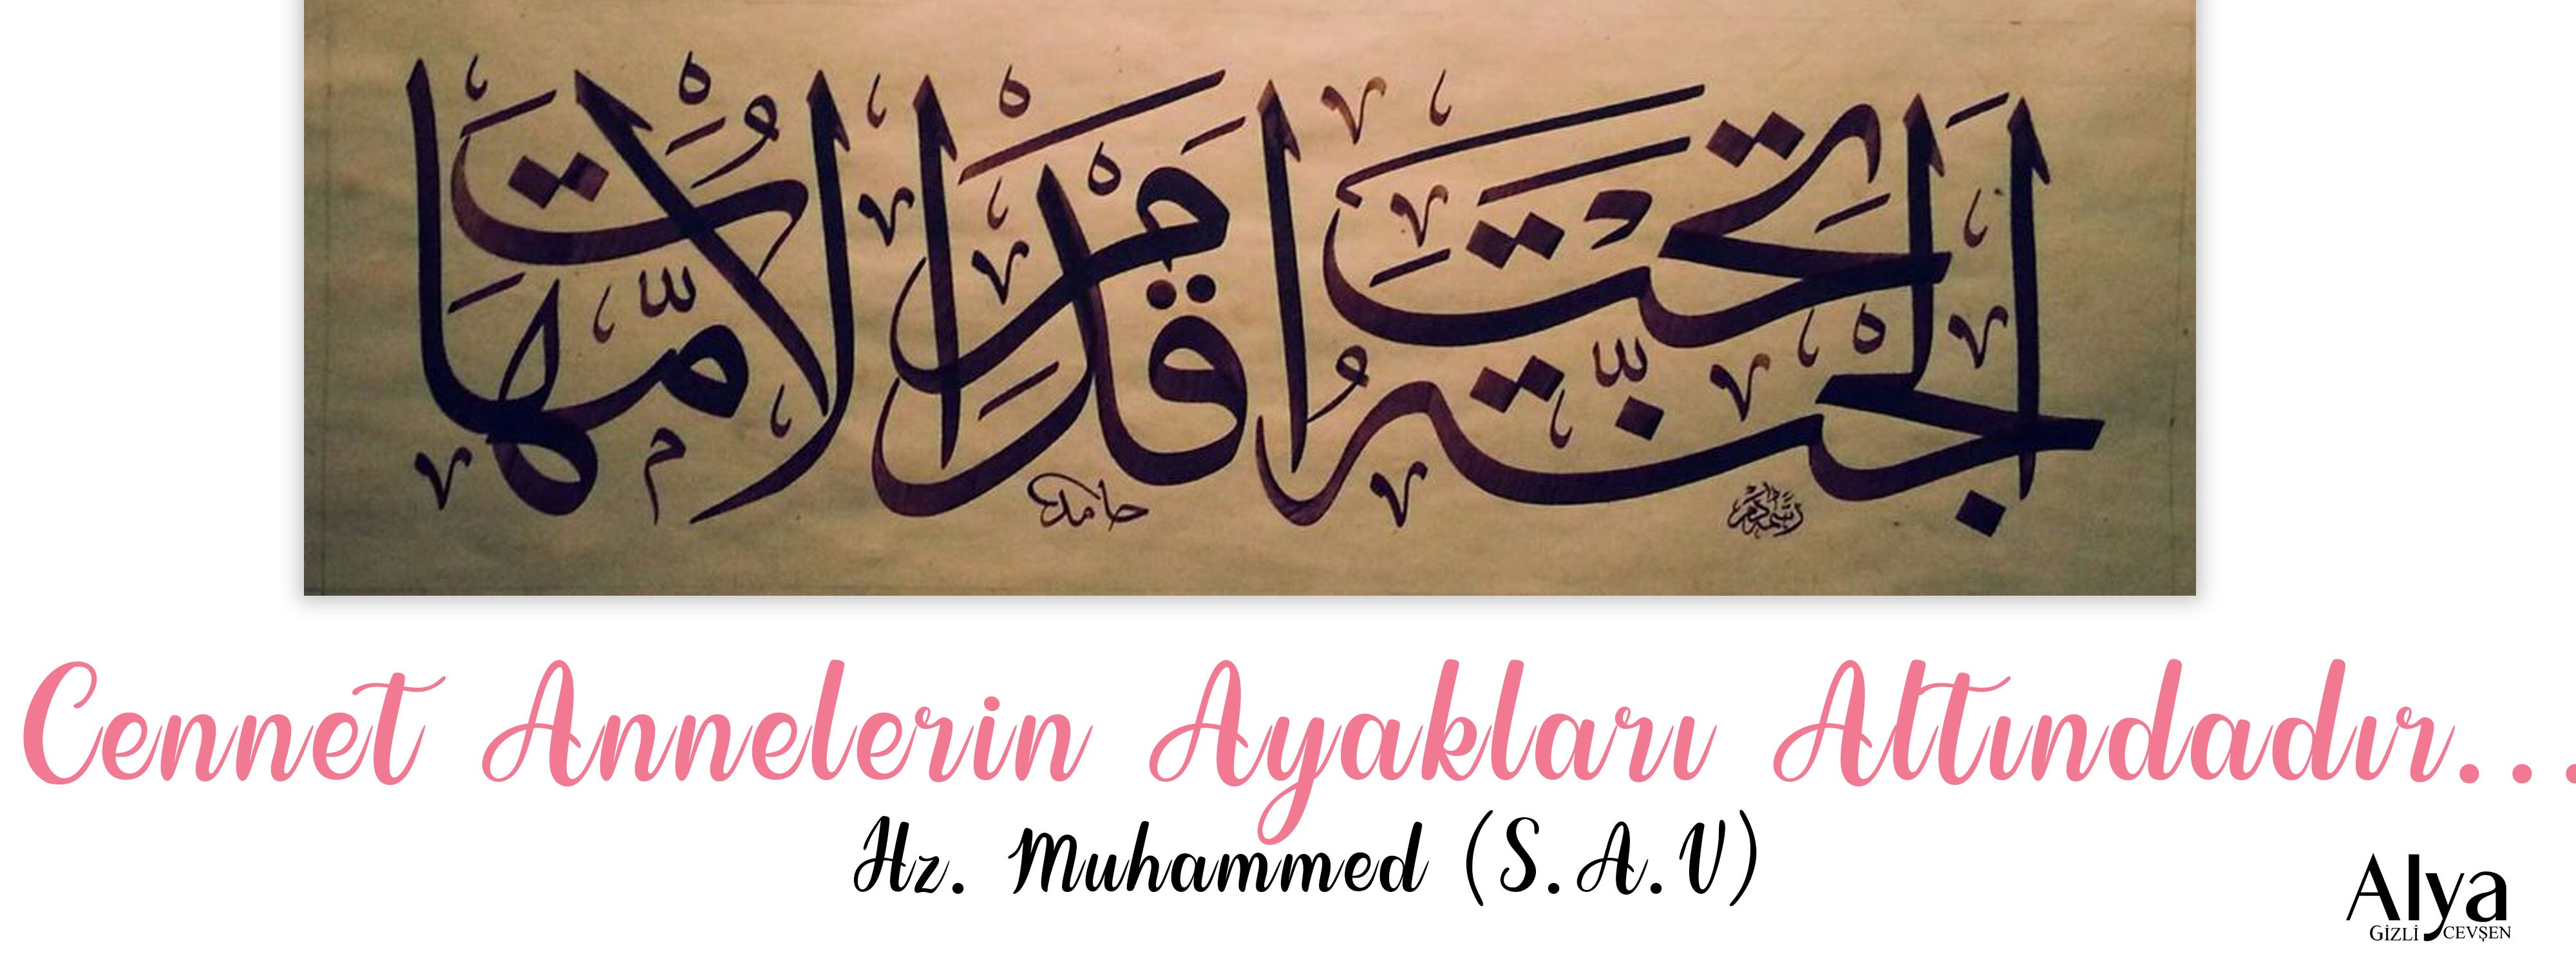 الجنة تحت اقدام الامهات
حامد
Cennet Annelerin Ayakları Altındadır...
Hz. Muhammed (S.A.V)
Alya
GİZLİ CEVŞEN